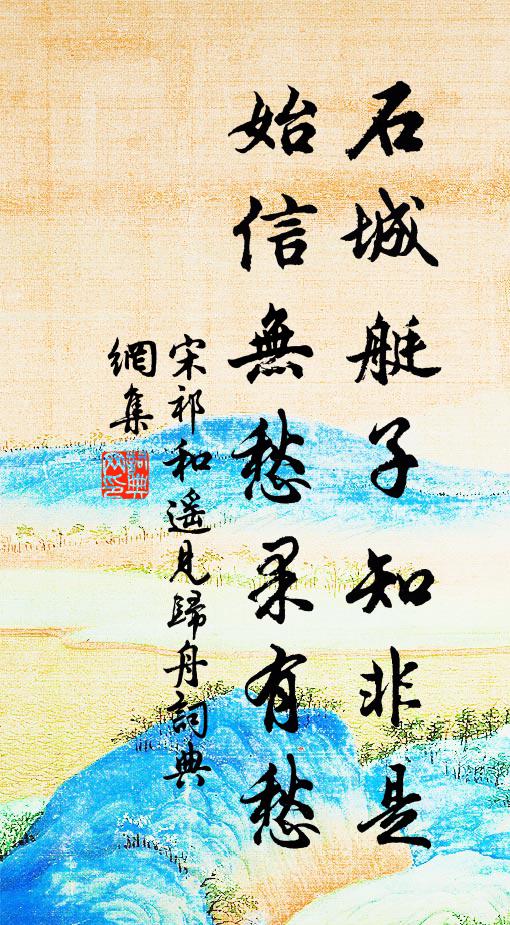 石城艇子知非是
始信無愁果有愁
宋祁和遥見歸舟詞典
網集